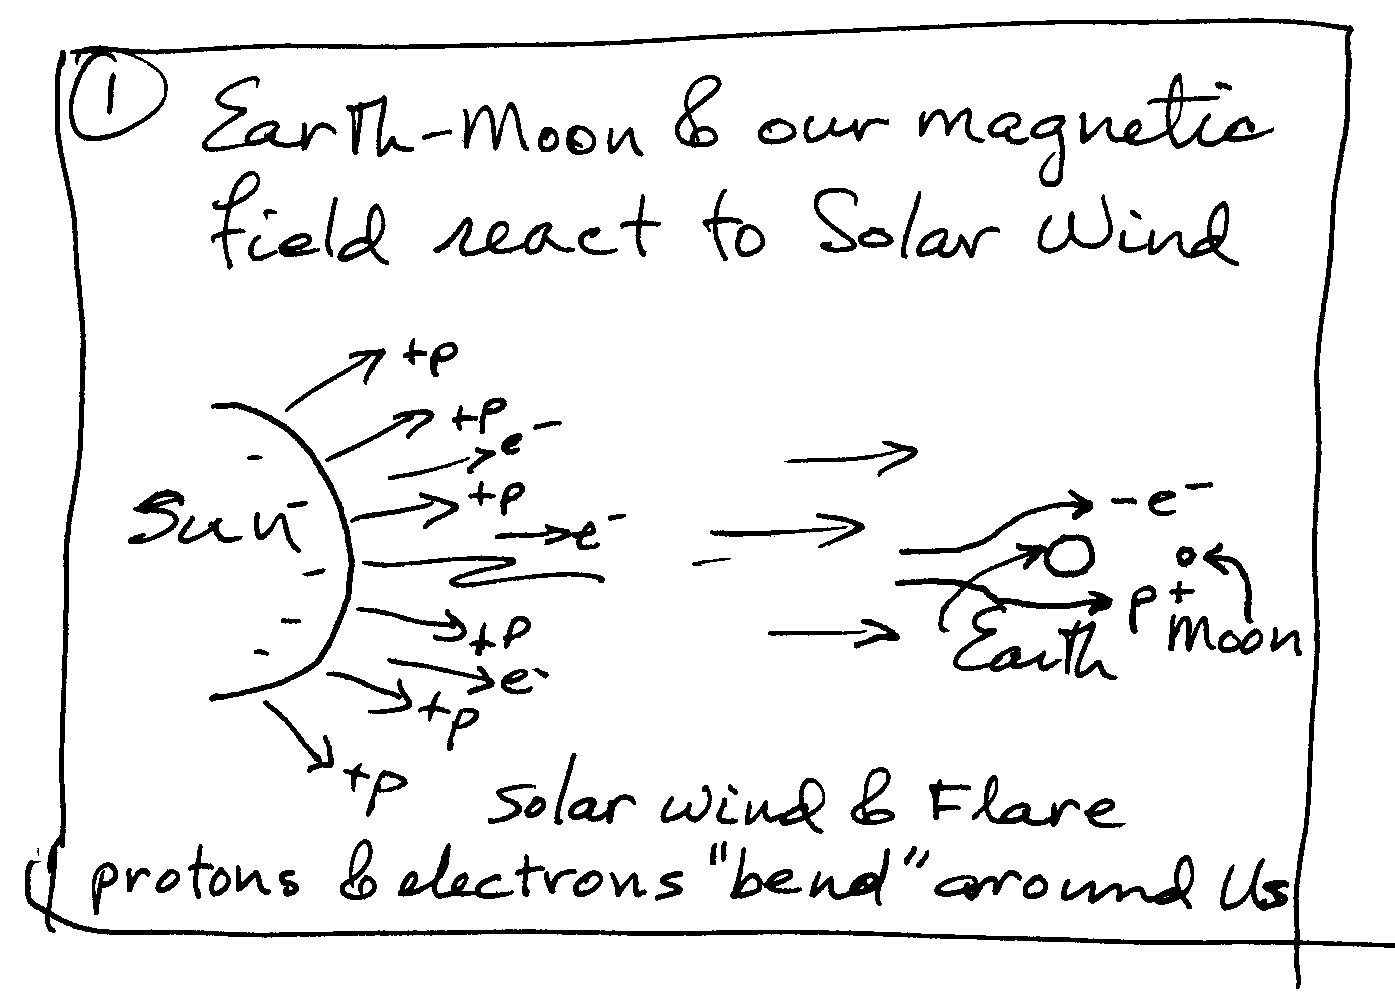 1
Earth-Moon & our magnetic
field react to Solar Wind
+p
+p
e-
+p
Sun
e-
-e-
p+
+p
Earth
Moon
e-
+p
+p
Solar wind & Flare
protons & electrons "bend" around Us